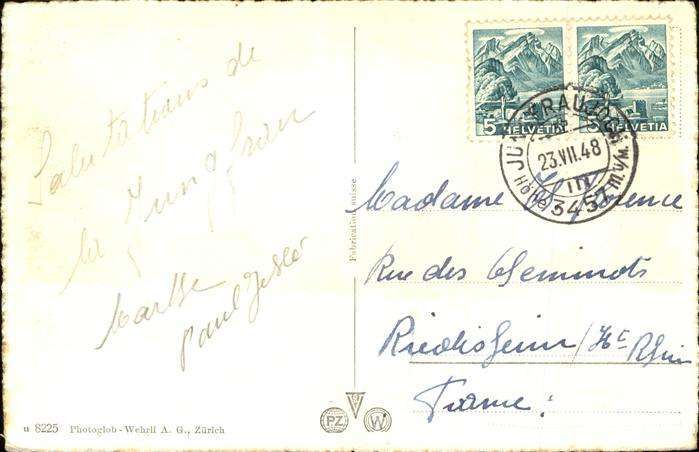 Salutations de
la Jungfrau
Marthe
Paul
u 8225 Photoglob-Wehrli A. G., Zürich
Fabrication suisse
PZ
W
5 HELVETIA
5 HELVETIA
JUNGFRAUJOCH
23.VII.48
Höhe 3457 m
Madame
Rue des Cheminots
Riedisheim / Ht Rhin
France.